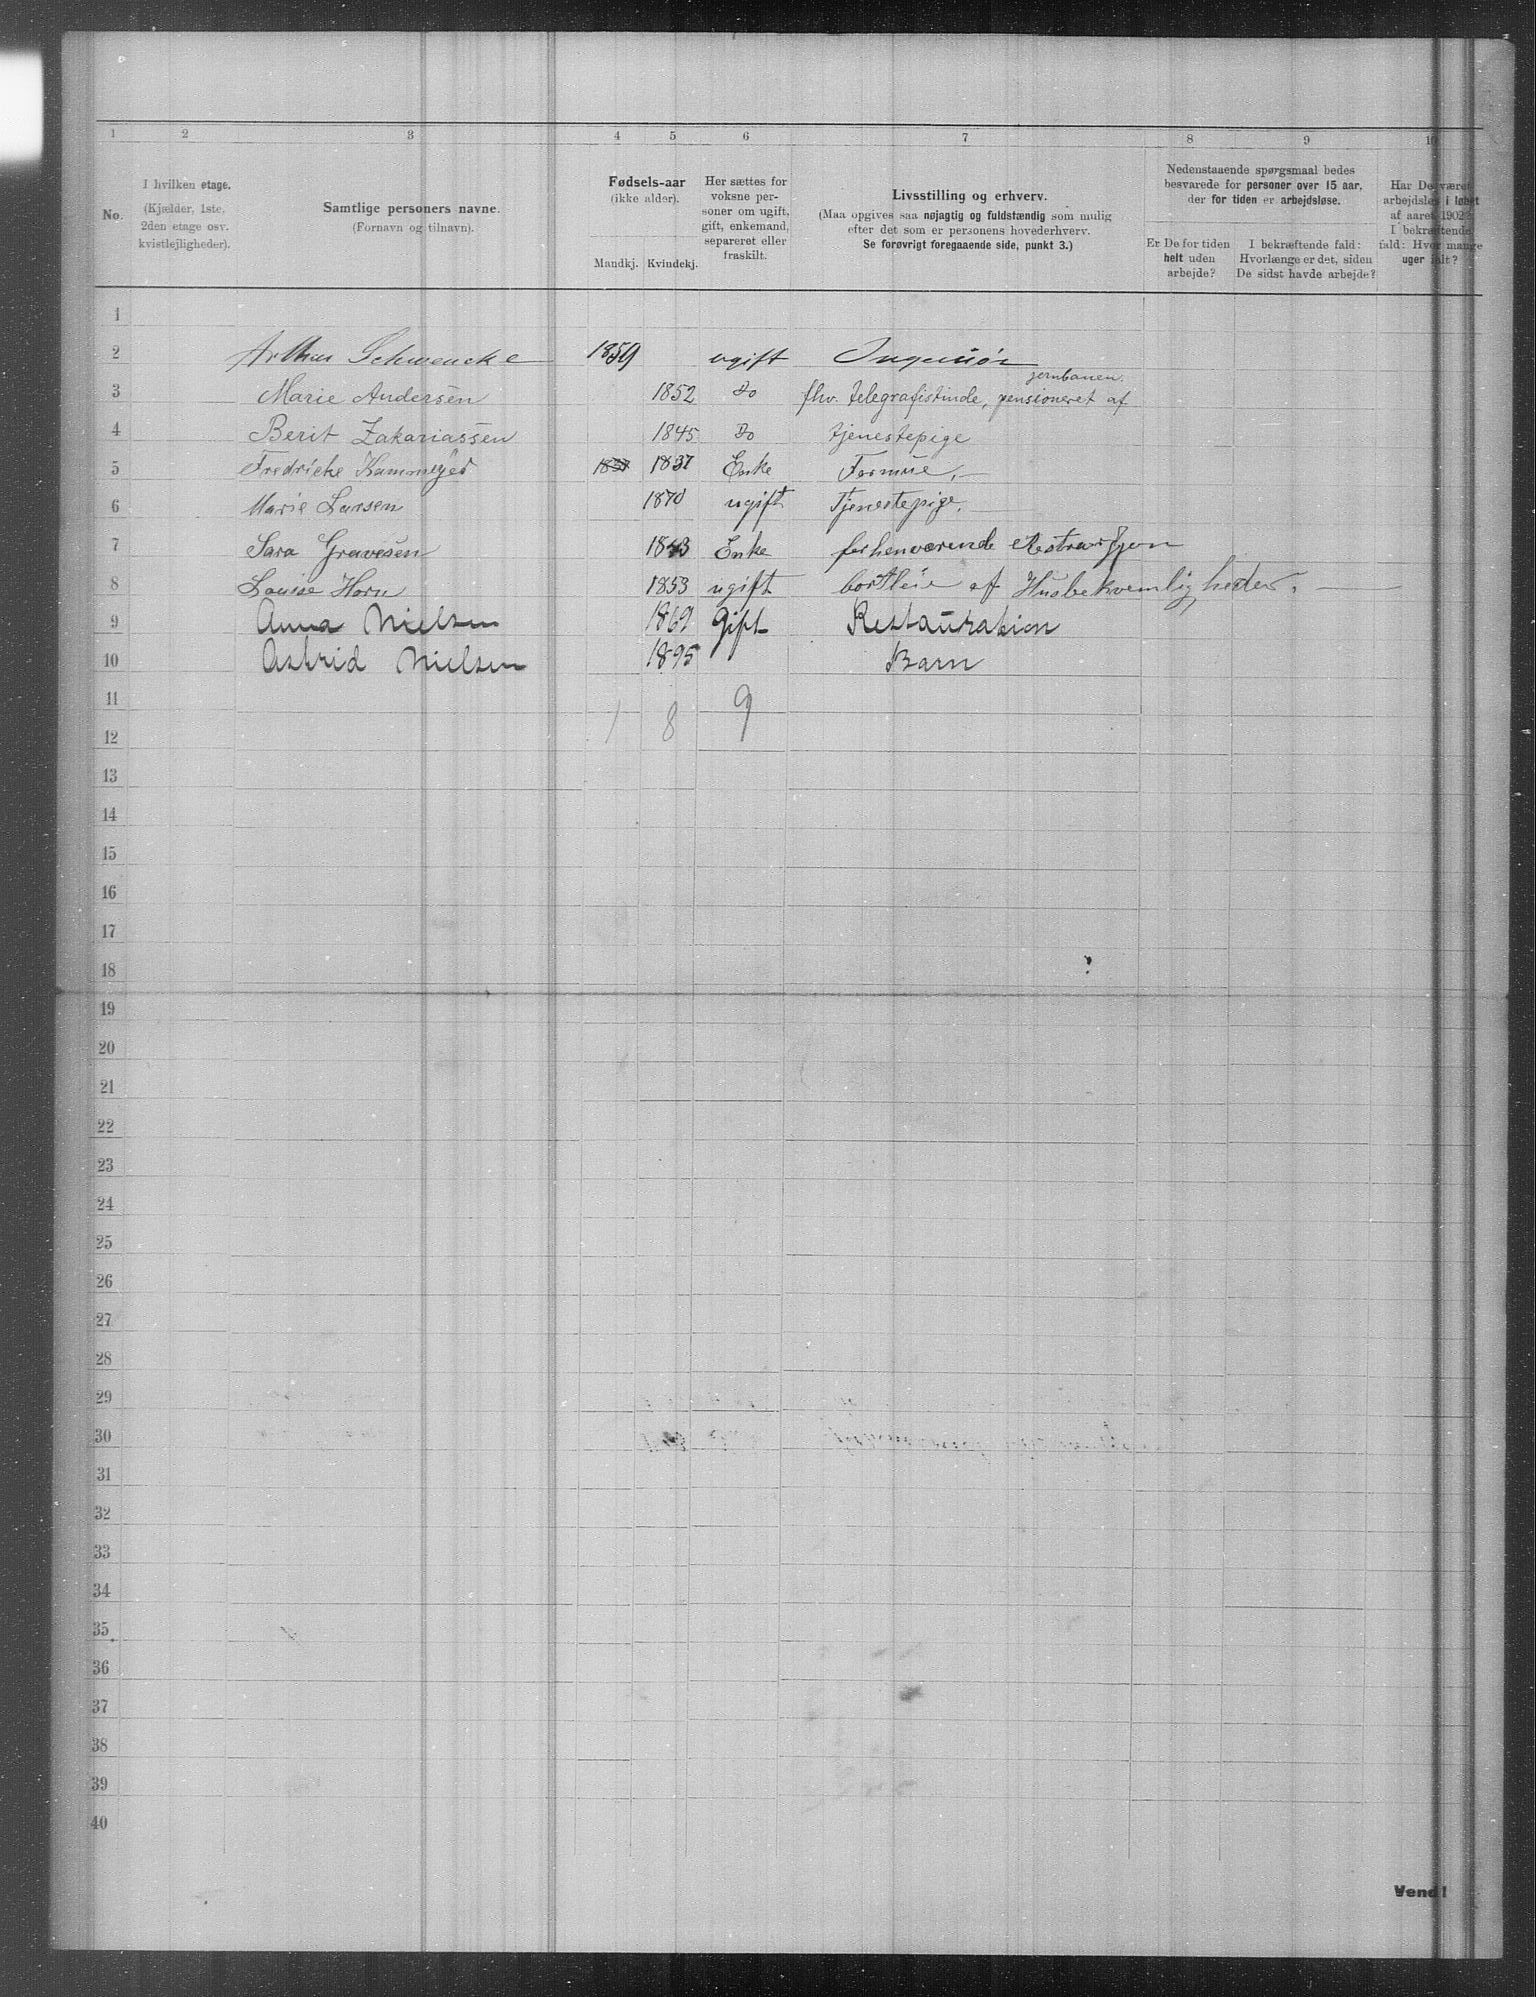 1 2 3 4 5 6 7 8 9 10
No.
I hvilken etage.
(Kjælder, 1ste,
2den etage osv.
kvistlejligheder).
Samtlige personers navne.
(Fornavn og tilnavn).
Fødsels-aar
(ikke alder).
Mandkj. Kvindekj.
Her sættes for
voksne per-
soner om ugift,
gift, enkemand,
separeret eller
fraskilt.
Livsstilling og erhverv.
(Maa opgives saa nøjagtig og fuldstændig som mulig
efter det som er personens hovederhverv.
Se forøvrigt foregaaende side, punkt 3.)
Nedenstaaende spørgsmaal bedes
besvarede for personer over 15 aar,
der for tiden er arbejdsløse.
Er De for tiden
helt uden
arbejde?
I bekræftende fald:
Hvorlænge er det, siden
De sidst havde arbejde?
Har De været
arbejdsløs i løbet
af aaret 1902?
I bekræftende
fald: Hvor mange
uger ialt?
1
2 Arthur Schwencke 1859 ugift Ingeniør
jernbanen.
3 Marie Andersen 1852 Do fhv. telegrafistinde, pensioneret af
4 Berit Zakariassen 1845 Do tjenestepige
5 Fredricke Kammejer 1837 1837 Enke Formue.
6 Marie Larsen 1870 ugift Tjenestepige.
7 Sara Gravesen 1843 Enke forhenværende
8 Louise Horn 1853 ugift bortleie af Husbekvemligheder.
9 Anna Nielsen 1869 Gift Restauration
10 Astrid Nielsen 1895 Barn
11
1 8 9
12
13
14
15
16
17
18
19
20
21
22
23
24
25
26
27
28
29
30
31
32
33
34
35
36
37
38
39
40
Vend!